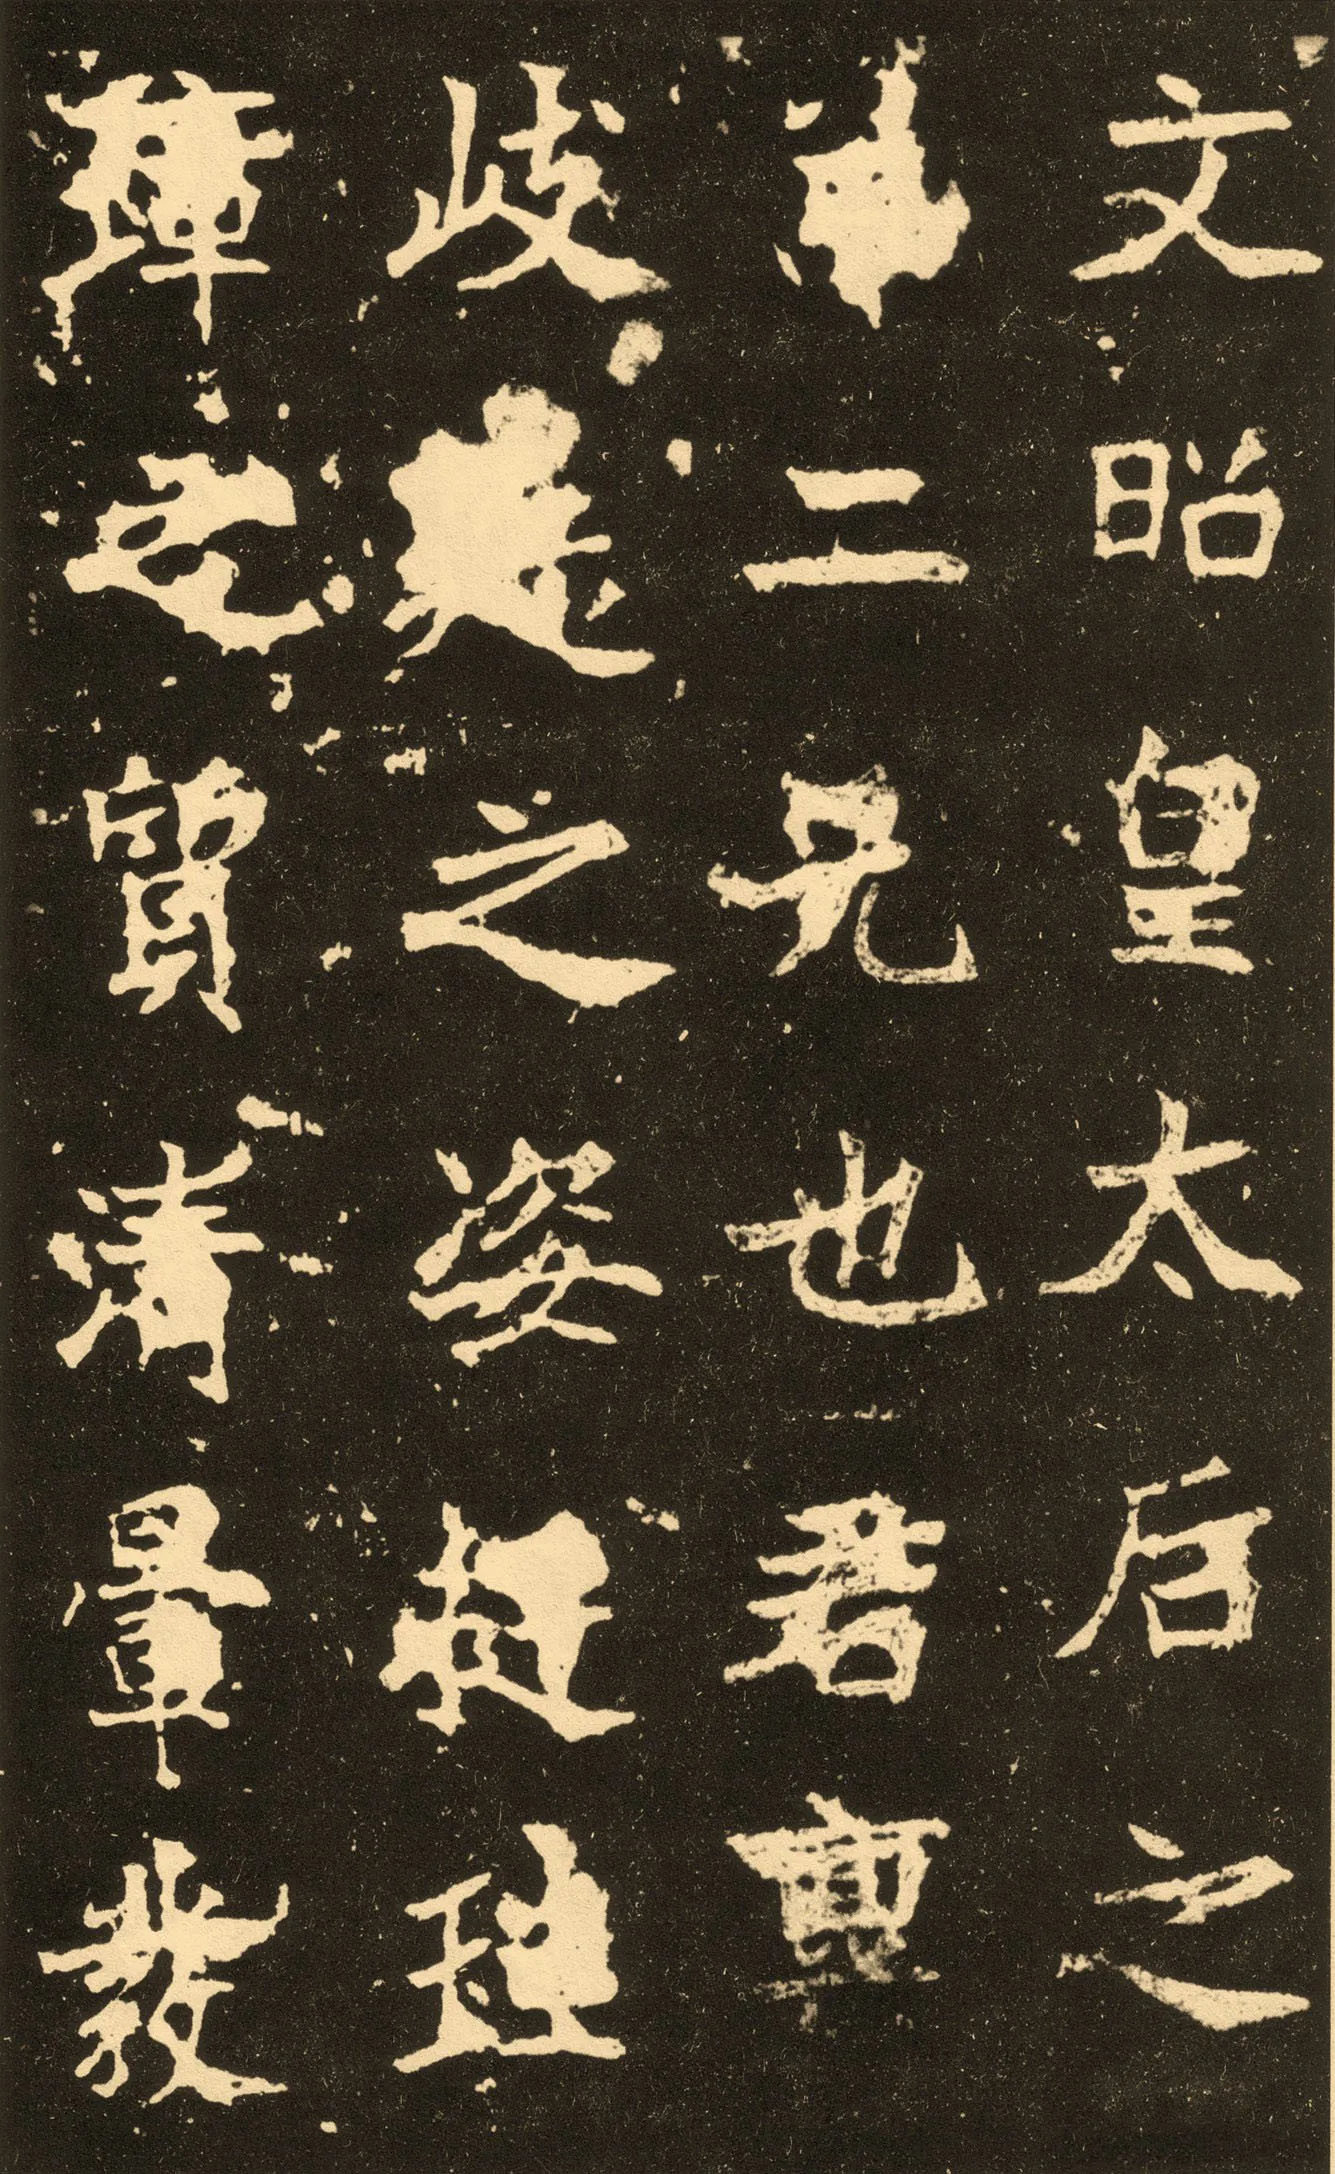 文昭皇太后之
二兄也君稟
岐嶷之姿挺珪
璋之質清暈發